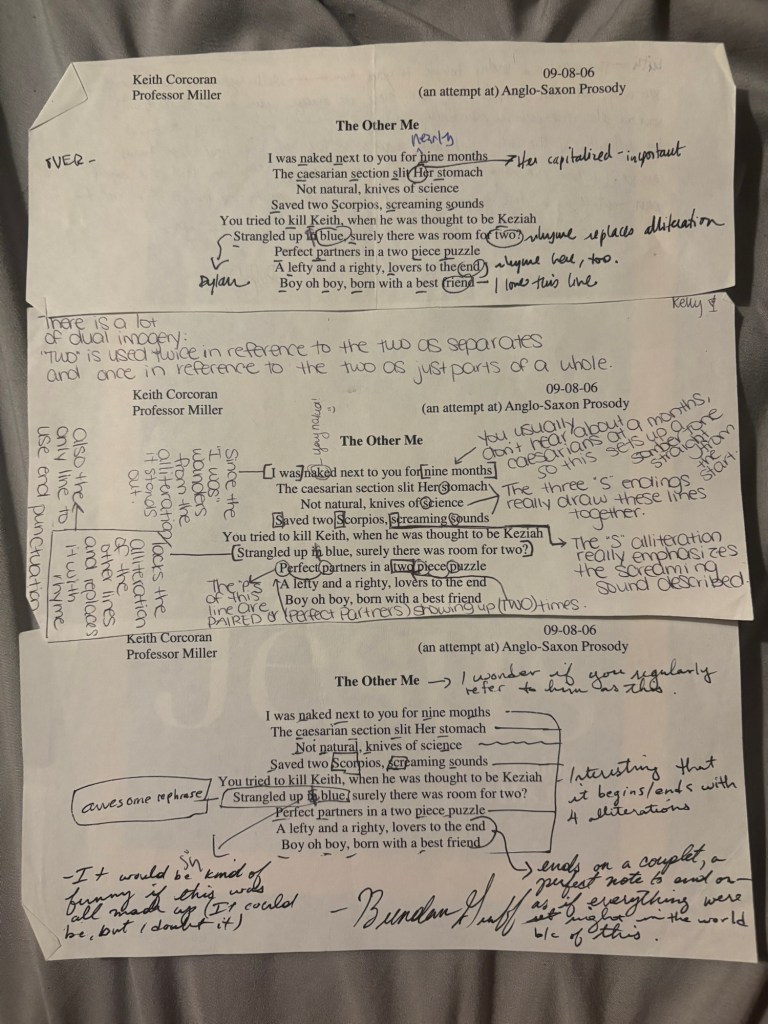 Keith Corcoran
09-08-06
Professor Miller
(an attempt at) Anglo-Saxon Prosody
The Other Me
nearly
OVER -
I was naked next to you for nine months
Her capitalized - important
The caesarian section slit Her stomach
Not natural, knives of science
Saved two Scorpios, screaming sounds
You tried to kill Keith, when he was thought to be Keziah
Strangled up in blue, surely there was room for two?
rhyme replaces alliteration
Perfect partners in a two piece puzzle
Dylan
A lefty and a righty, lovers to the end
rhyme here, too.
Boy oh boy, born with a best friend
I love this line
Kelly
There is a lot
of dual imagery:
"TWO" is used twice in reference to the two as separates
and once in reference to the two as just parts of a whole.
Keith Corcoran
09-08-06
Professor Miller
(an attempt at) Anglo-Saxon Prosody
The Other Me
You usually
don't hear about
caesarians at 9 months,
so this sets up a
tone straight from
the start.
Since the
"I was"
wanders
from the
alliteration
it stands
out.
I was naked next to you for nine months
The caesarian section slit Her stomach
Not natural, knives of science
The three "S" endings
really draw these lines
together.
Saved two Scorpios, screaming sounds
You tried to kill Keith, when he was thought to be Keziah
Strangled up in blue, surely there was room for two?
The "S" alliteration
really emphasizes
the screaming
sound described.
lacks the
alliteration
of the
other lines
and replaces
it with
rhyme
also the
only line to
use end punctuation
Perfect partners in a two piece puzzle
A lefty and a righty, lovers to the end
Boy oh boy, born with a best friend
The "P"s
of this
line are
PAIRED or (Perfect Partners) showing up (TWO) times.
Keith Corcoran
09-08-06
Professor Miller
(an attempt at) Anglo-Saxon Prosody
The Other Me
I wonder if you regularly
refer to him as this.
I was naked next to you for nine months
The caesarian section slit Her stomach
Not natural, knives of science
Saved two Scorpios, screaming sounds
You tried to kill Keith, when he was thought to be Keziah
Interesting that
it begins/ends with
4 alliterations
awesome rephrase
Strangled up in blue, surely there was room for two?
Perfect partners in a two piece puzzle
A lefty and a righty, lovers to the end
Boy oh boy, born with a best friend
in
-It would be kind of
funny if this was
all made up (It could
be, but I doubt it)
ends on a couplet, a
perfect note to end on -
as if everything were
set right in the world
b/c of this.
- Brendan